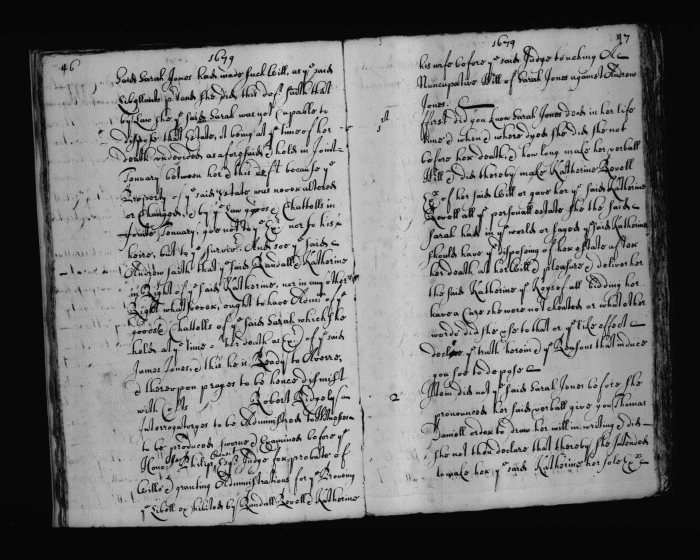 46
1679
said Sarah Jones had made such Will, as ye said
Lybellants prtends she did, this deft saith that
by Law she ye said Sarah was not Capable to
dispose that Estate, it being at ye time of her
death undevided as aforesaid & held in Joint-
Tennancy between her & this deft because ye
Property of ye said Estate was never altered
or Changed, & by ye Law goods & Chattells in
Jointe Tennancy, goe not to ye Exr nor to his
heire, but to ye survivor. And soe ye said
Andrew saith that ye said Randall & Katherine
in Right of ye said Katherine, nor in any other
Right whatsoever, ought to have Admn of ye
goods & Chattells of ye said Sarah which she
held at ye time of her death as Exx of ye said
James Jones, & this he is Ready to Averre,
& thereupon prayes to be hence dismist
with Costs Robert Ridgely
Interrogatoryes to be Administred to Witnesses
to be produced sworne & Examined before ye
Honoble Philip Calvert Esqr Judge for probate of
Wills & granting Administrations for ye Province
ye Libell exhibited by Randall Revell & Katherine
1679
47
his wife before ye said Judge touching the
Nuncupative Will of Sarah Jones against Andrew
Jones.
1st
ffirst did you know Sarah Jones decd in her life
time, & when & where dyed she, did she not
before her death, & how long make her verball
Will & did thereby make Katherine Revell
Exx of her said Will or gave her ye said Katherine
Revell all ye personall estate she the said
Sarah had in ye world or sayed ye said Katherine
should have ye disposing of her estate after
her death at her Will & pleasure & deliver her
the said Katherine ye Keyes of all bidding her
have a care she were not cheated or what other
words did she use to that or ye like effect
declare ye truth herein & ye Reasons that induce
you soe to depose
2
Item did not ye said Sarah Jones before she
pronounced her said verball give you Thomas
Daniell order to draw her will in writing & did
she not then declare that thereby she intended
to make her ye said Katherine her sole Exx